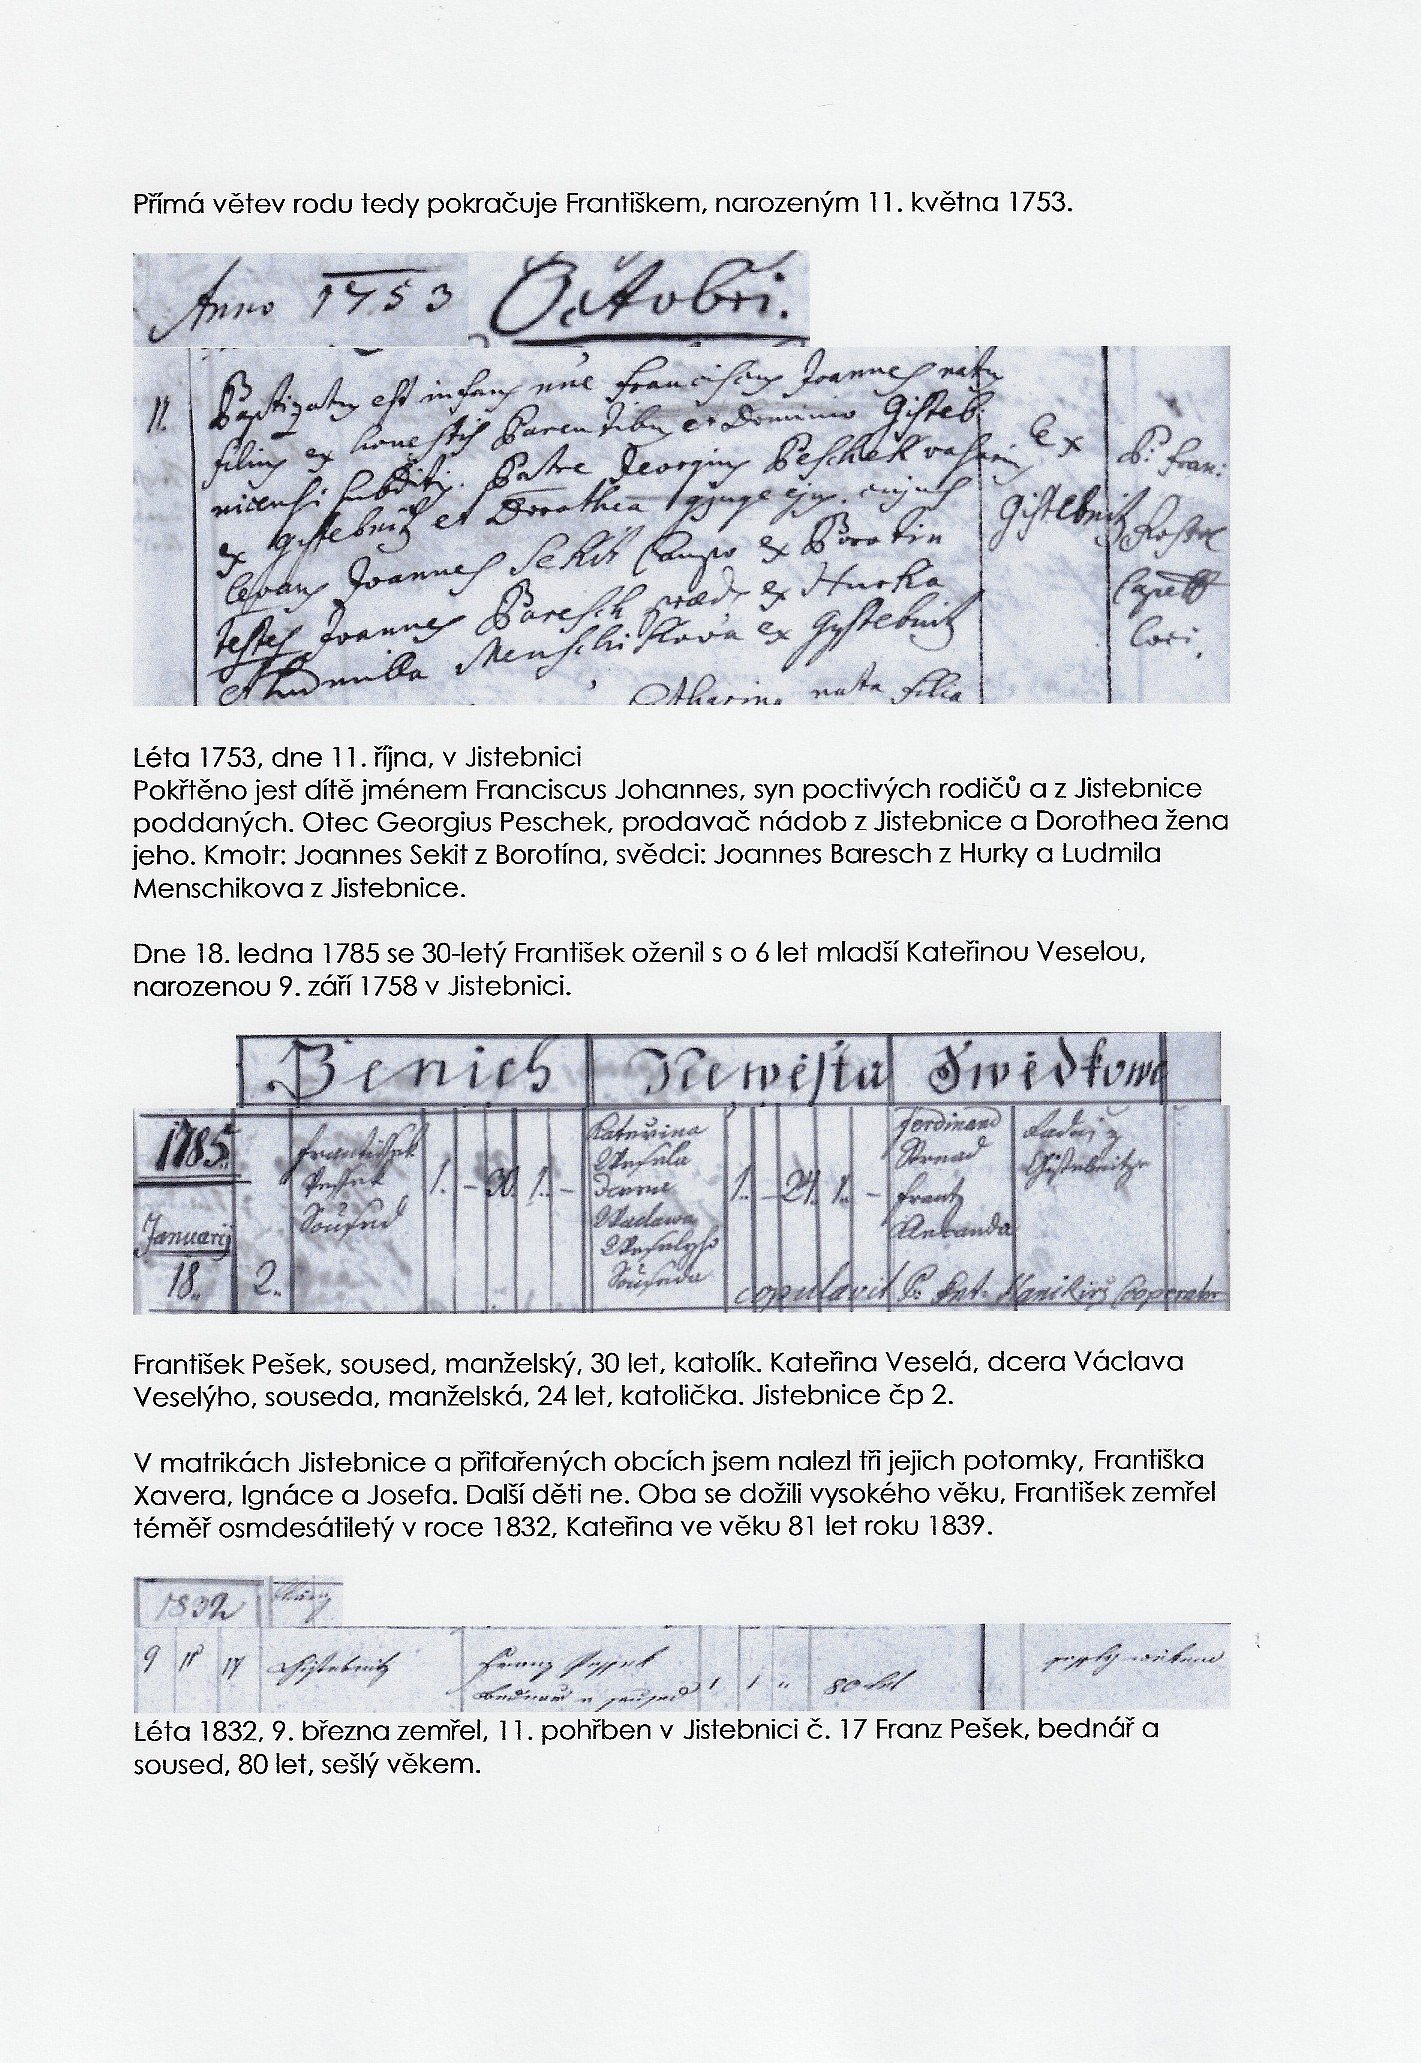 Přímá větev rodu tedy pokračuje Františkem, narozeným 11. května 1753.
Anno 1753 Octobri.
11. Baptizatus est infans nne Franciscus Joannes natus
filius ex honestis Parentibus et Dominio Gisteb:
nicensi subditis. Patre Georgius Peschek
ex Gistebnitz et Dorothea ejus. cujus
levans Joannes Sekit ex Borotin
testes Joannes Baresch ex Hurka
Ludmilla Menschikova ex Gystebnitz
Ex
Gistebnitz
P. Fran:
Catharina nata filia
Léta 1753, dne 11. října, v Jistebnici
Pokřtěno jest dítě jménem Franciscus Johannes, syn poctivých rodičů a z Jistebnice
poddaných. Otec Georgius Peschek, prodavač nádob z Jistebnice a Dorothea žena
jeho. Kmotr: Joannes Sekit z Borotína, svědci: Joannes Baresch z Hurky a Ludmila
Menschikova z Jistebnice.
Dne 18. ledna 1785 se 30-letý František oženil s o 6 let mladší Kateřinou Veselou,
narozenou 9. září 1758 v Jistebnici.
Ženich Newěsta Swědkowé
1785
Januarij
18. 2.
Frantissek
Pessek
Saused
1. – 30. 1. –
Kateřina
Wesela
Waclawa
Weselyho
Sauseda
1. – 24. 1. –
Ferdinand
Frantz
copulavit P. Ant. Cooperator
František Pešek, soused, manželský, 30 let, katolík. Kateřina Veselá, dcera Václava
Veselýho, souseda, manželská, 24 let, katolička. Jistebnice čp 2.
V matrikách Jistebnice a přifařených obcích jsem nalezl tři jejich potomky, Františka
Xavera, Ignáce a Josefa. Další děti ne. Oba se dožili vysokého věku, František zemřel
téměř osmdesátiletý v roce 1832, Kateřina ve věku 81 let roku 1839.
1832 März
9 11 17 Gistebnitz Franz Pessek 1 1 " 80 let
Léta 1832, 9. března zemřel, 11. pohřben v Jistebnici č. 17 Franz Pešek, bednář a
soused, 80 let, sešlý věkem.